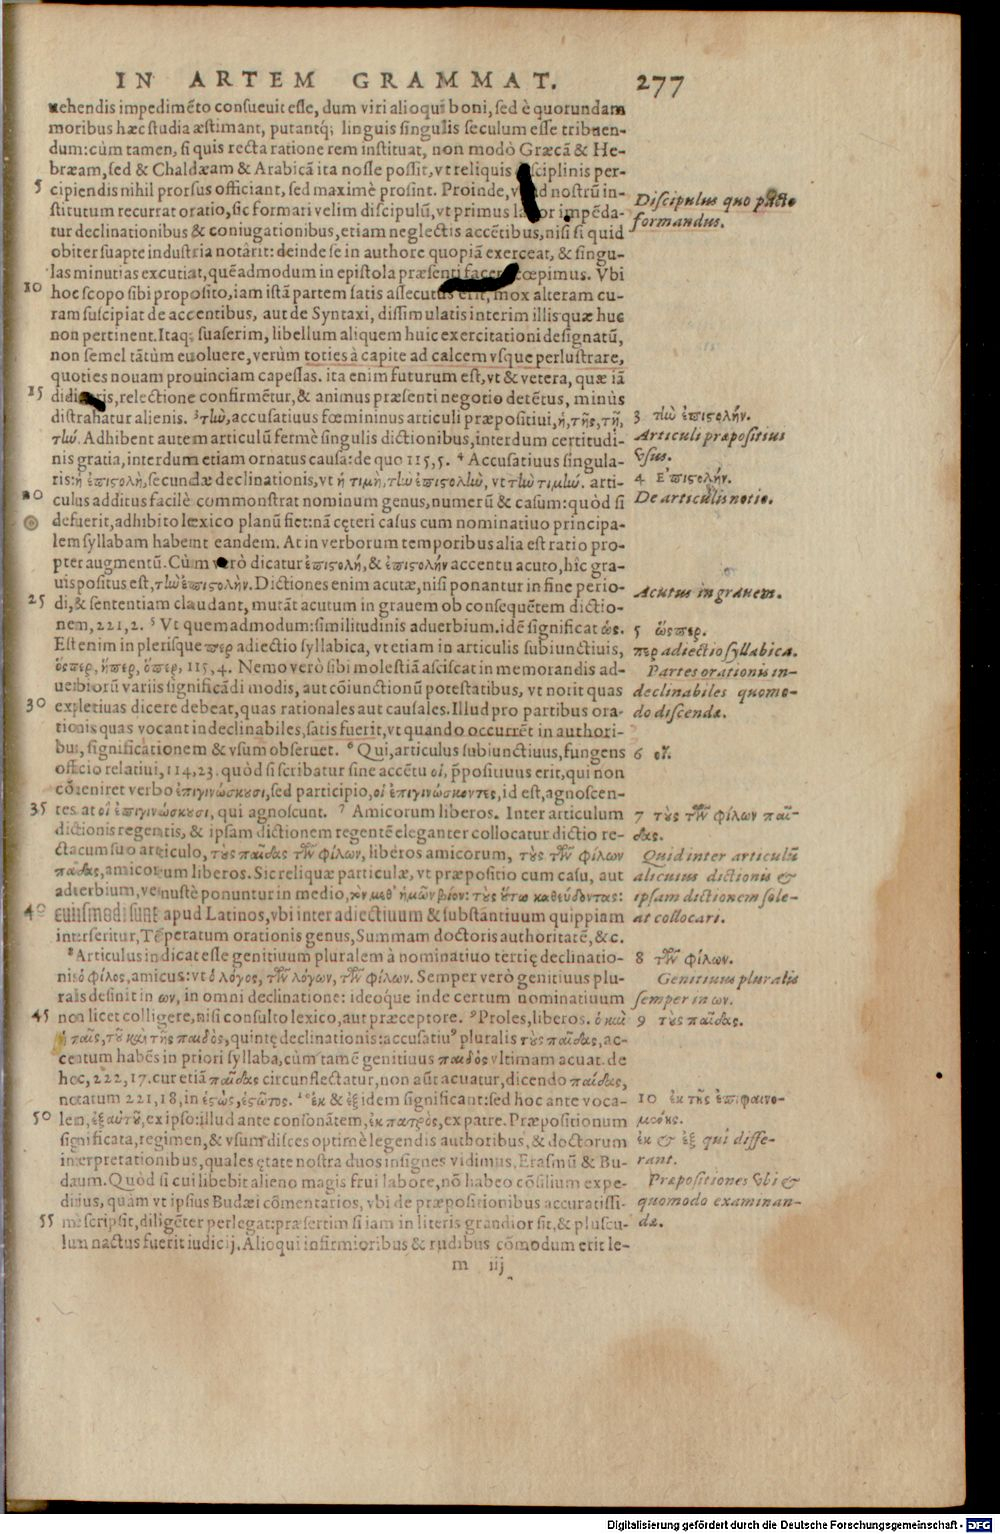 IN ARTEM GRAMMAT. 277
uehendis impedimẽto consueuit esse, dum viri alioqui boni, sed è quorundam
moribus hæc studia æstimant, putantq; linguis singulis seculum esse tribuen-
dum: cùm tamen, si quis recta ratione rem instituat, non modò Græcã & He-
bræam, sed & Chaldæam & Arabicã ita nosse possit, vt reliquis per-
5 cipiendis nihil prorsus officiant, sed maximè prosint. Proinde, nostrũ in-
stitutum recurrat oratio, sic formari velim discipulũ, vt primus impẽda-
tur declinationibus & coniugationibus, etiam neglectis accẽtibus, nisi si quid
obiter suapte industria notârit: deinde se in authore quopiã exerceat, & singu-
las minutias excutiat, quẽadmodum in epistola præsenti cœpimus. Vbi
10 hoc scopo sibi proposito, iam istã partem satis assecutus erit, mox alteram cu-
ram suscipiat de accentibus, aut de Syntaxi, dissimulatis interim illis quæ huc
non pertinent. Itaq; suaserim, libellum aliquem huic exercitationi designatũ,
non semel tãtùm euoluere, verùm toties à capite ad calcem vsque perlustrare,
quoties nouam prouinciam capessas. ita enim futurum est, vt & vetera, quæ iã
15 relectione confirmẽtur, & animus præsenti negotio detẽtus, minùs
distrahatur alienis. ³τὴν, accusatiuus fœmininus articuli præpositiui, ἡ, τῆς, τῇ,
τὴν. Adhibent autem articulũ fermè singulis dictionibus, interdum certitudi-
nis gratia, interdum etiam ornatus causa: de quo 115, 5. ⁴ Accusatiuus singula-
ris: ἡ ἐπιστολή, secundæ declinationis, vt ἡ τιμή, τὴν ἐπιστολὴν, vt τὴν τιμὴν. arti-
20 culus additus facilè commonstrat nominum genus, numerũ & casum: quòd si
defuerit, adhibito lexico planũ fiet: nã cęteri casus cum nominatiuo principa-
lem syllabam habent eandem. At in verborum temporibus alia est ratio pro-
pter augmentũ. Cùm verò dicatur ἐπιστολή, & ἐπιστολήν accentu acuto, hîc gra-
uis positus est, τὴν ἐπιστολὴν. Dictiones enim acutæ, nisi ponantur in fine perio-
25 di, & sententiam claudant, mutãt acutum in grauem ob consequẽtem dictio-
nem, 221, 2. ⁵ Vt quemadmodum: similitudinis aduerbium. idẽ significat ὡς.
Est enim in plerisque περ adiectio syllabica, vt etiam in articulis subiunctiuis,
ὅσπερ, ἥπερ, ὅπερ, 115, 4. Nemo verò sibi molestiã asciscat in memorandis ad-
uerbiorũ variis significãdi modis, aut cõiunctionũ potestatibus, vt norit quas
30 expletiuas dicere debeat, quas rationales aut causales. Illud pro partibus ora-
tionis quas vocant indeclinabiles, satis fuerit, vt quando occurrẽt in authori-
bus, significationem & vsum obseruet. ⁶ Qui, articulus subiunctiuus, fungens
officio relatiui, 114, 23. quòd si scribatur sine accẽtu οἱ, p̃positiuus erit, qui non
cõueniret verbo ἐπιγινώσκουσι, sed participio, οἱ ἐπιγινώσκοντες, id est, agnoscen-
35 tes. at οἳ ἐπιγινώσκουσι, qui agnoscunt. ⁷ Amicorum liberos. Inter articulum
dictionis regentis, & ipsam dictionem regentẽ eleganter collocatur dictio re-
cta cum suo articulo, τοὺς παῖδας τῶν φίλων, liberos amicorum, τοὺς τῶν φίλων
παῖδας, amicorum liberos. Sic reliquæ particulæ, vt præpositio cum casu, aut
aduerbium, venustè ponuntur in medio, τὸν μεθ' ἡμῶν βίον: τοὺς οὕτω καθεύδοντας:
40 euiusmodi sunt apud Latinos, vbi inter adiectiuum & substãntiuum quippiam
interseritur, Tẽperatum orationis genus, Summam doctoris authoritatẽ, &c.
⁸Articulus indicat esse genitiuum pluralem à nominatiuo tertię declinatio-
nis ὁ φίλος, amicus: vt ὁ λόγος, τῶν λόγων, τῶν φίλων. Semper verò genitiuus plu-
ralis desinit in ων, in omni declinatione: ideoque inde certum nominatiuum
45 non licet colligere, nisi consulto lexico, aut præceptore. ⁹Proles, liberos. ὁ καὶ
ἡ παῖς, τοῦ καὶ τῆς παιδὸς, quintę declinationis: accusatiuꝰ pluralis τοὺς παῖδας, ac-
centum habẽs in priori syllaba, cùm tamẽ genitiuus παιδὸς vltimam acuat. de
hoc, 222, 17. cur etiã παῖδας circunflectatur, non aũt acuatur, dicendo παίδας,
notatum 221, 18, in ἑστὼς, ἑστῶτος. ¹⁰ἐκ & ἐξ idem significant: sed hoc ante voca-
50 lem, ἐξ αὐτοῦ, ex ipso: illud ante consonãtem, ἐκ πατρὸς, ex patre. Præpositionum
significata, regimen, & vsum disces optimè legendis authoribus, & doctorum
interpretationibus, quales ętate nostra duos insignes vidimus, Erasmũ & Bu-
dæum. Quòd si cui libebit alieno magis frui labore, nõ habeo cõsilium expe-
ditius, quàm vt ipsius Budæi cõmentarios, vbi de præpositionibus accuratissi-
55 mè scripsit, diligẽter perlegat: præsertim si iam in literis grandior sit, & pluscu-
lum nactus fuerit iudicij. Alioqui infirmioribus & rudibus cõmodum erit le-
m iij
Discipulus quo pacto
formandus.
3 τὴν ἐπιστολήν.
Articuli præpositiui
vsus.
4 Ἐπιστολήν.
De articulis notio.
Acutus in grauem.
5 ὥσπερ.
περ adiectio syllabica.
Partes orationis in-
declinabiles quomo-
do discendæ.
6 οἳ.
7 τοὺς τῶν φίλων παῖ-
δας.
Quid inter articulũ
alicuius dictionis &
ipsam dictionem sole-
at collocari.
8 τῶν φίλων.
Genitiuus pluralis
semper in ων.
9 τοὺς παῖδας.
10 ἐκ τῆς ἐπιφαινο-
μένης.
ἐκ & ἐξ qui diffe-
rant.
Præpositiones vbi &
quomodo examinan-
dæ.
Digitalisierung gefördert durch die Deutsche Forschungsgemeinschaft - DFG